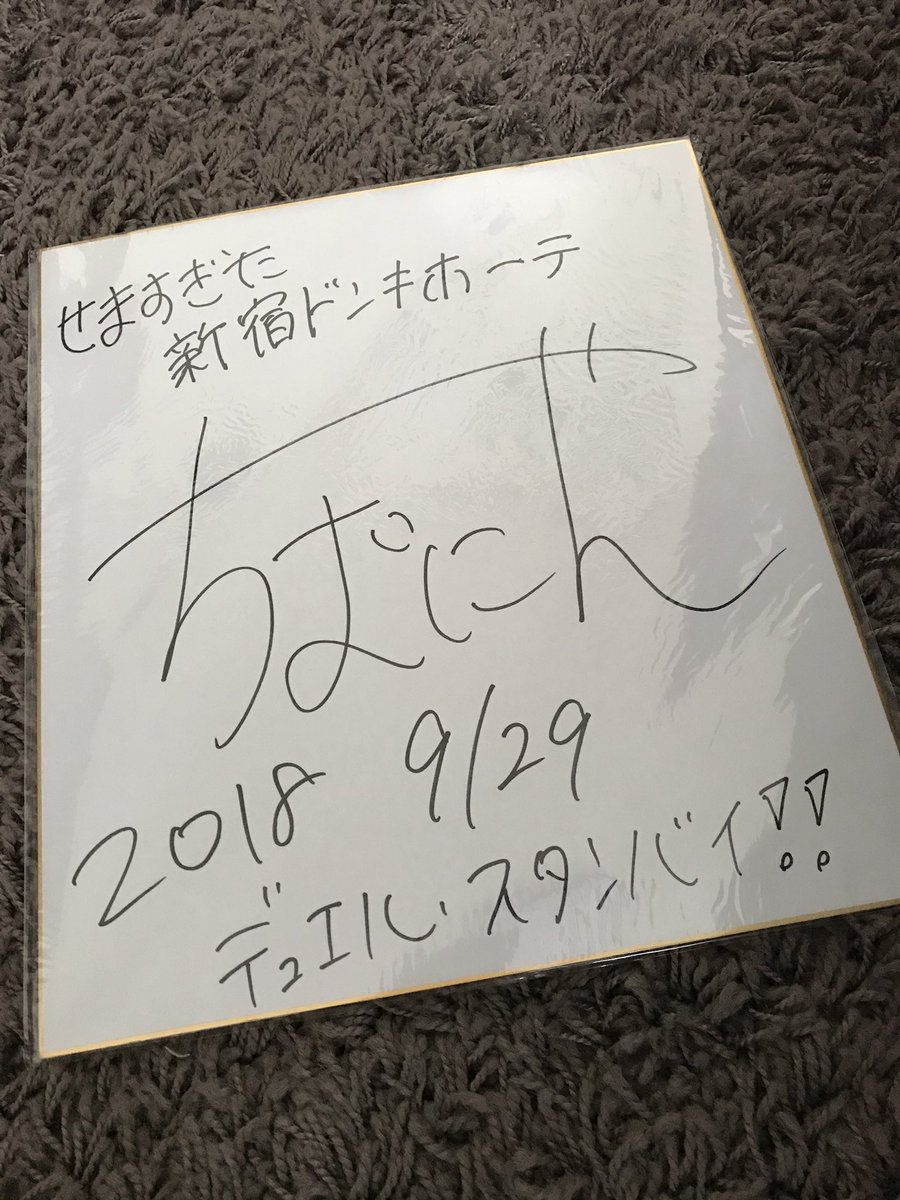 せますぎた
新宿ドンキホーテ
2018 9/29
デュエル・スタンバイ!!